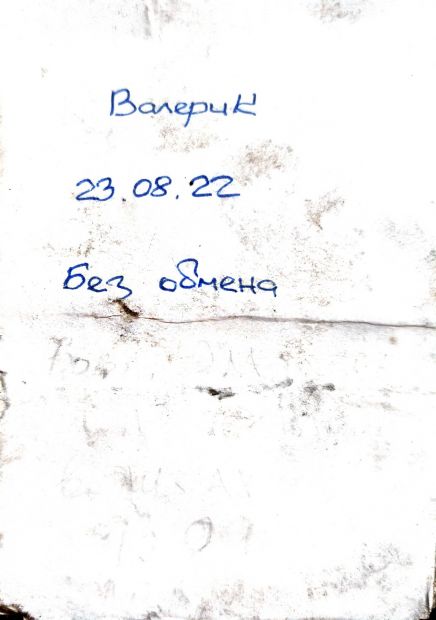 Валерик
23.08.22
Без обмена